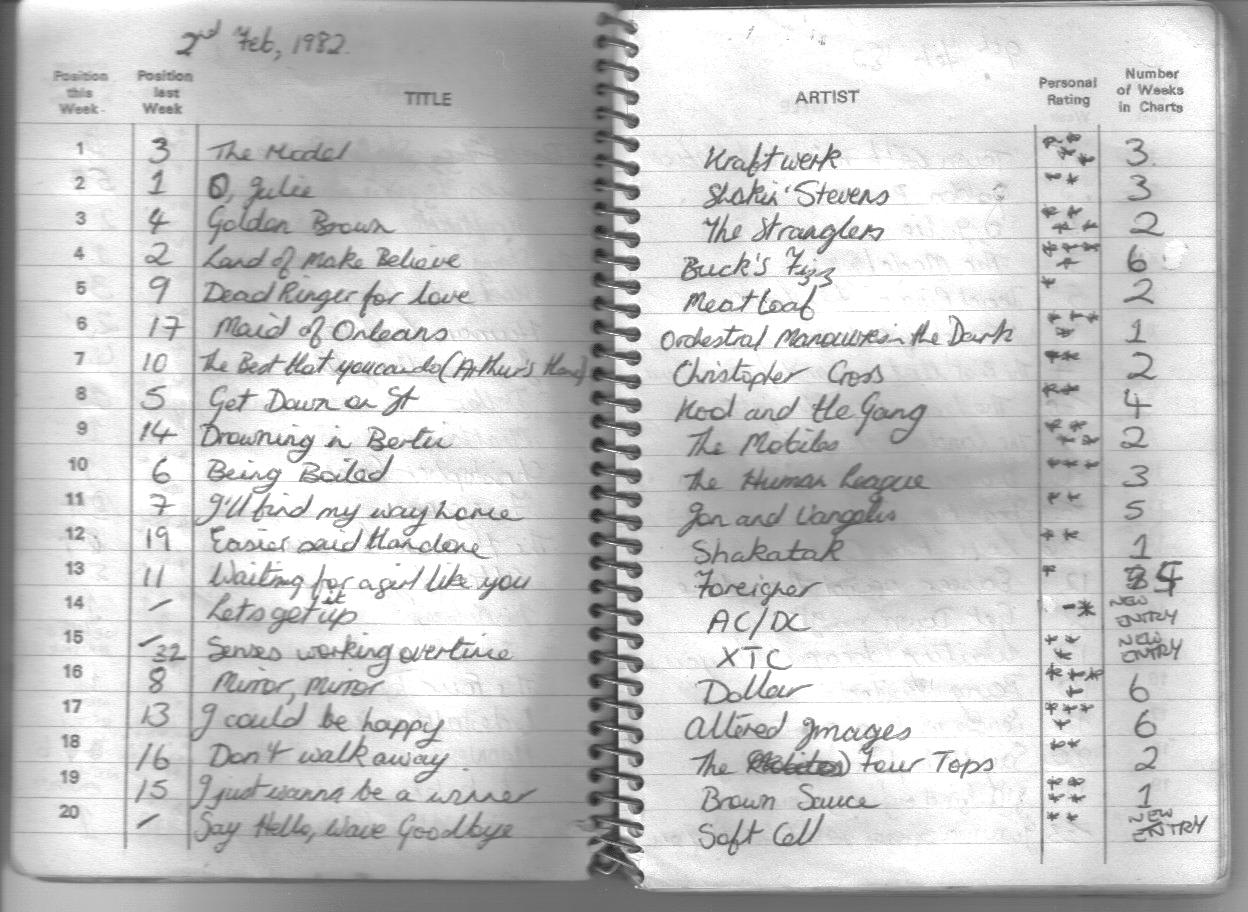 2nd Feb, 1982.
Position this Week Position last Week TITLE ARTIST Personal Rating Number of Weeks in Charts
1 3 The Model Kraftwerk ***** 3
2 1 O, Julie Shakin' Stevens ** 3
3 4 Golden Brown The Stranglers **** 2
4 2 Land of Make Believe Buck's Fizz **** 6
5 9 Dead Ringer for love Meatloaf * 2
6 17 Maid of Orleans Orchestral Manouvres in the Dark **** 1
7 10 The Best that you can do (Arthur's Christopher Cross ** 2
8 5 Get Down on It Kool and the Gang ** 4
9 14 Drowning in Berlin The Mobiles **** 2
10 6 Being Boiled The Human League *** 3
11 7 I'll find my way home Jon and Vangelis ** 5
12 19 Easier said than done Shakatak ** 1
13 11 Waiting for a girl like you Foreigner * 4
14 – Let's get it up AC/DC -* NEW ENTRY
15 – 32 Senses working overtime XTC *** NEW ENTRY
16 8 Mirror, Mirror Dollar **** 6
17 13 I could be happy Altered Images **** 6
18 16 Don't walk away The Four Tops ** 2
19 15 I just wanna be a winner Brown Sauce **** 1
20 – Say Hello, Wave Goodbye Soft Cell ** NEW ENTRY